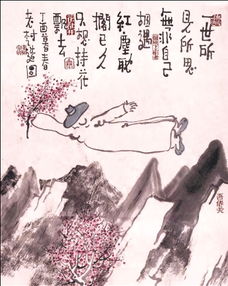 一世所
見所思
無非自己
相遇
紅塵耽
擱已久
只想持花
雲上
丁酉春
老村造圖